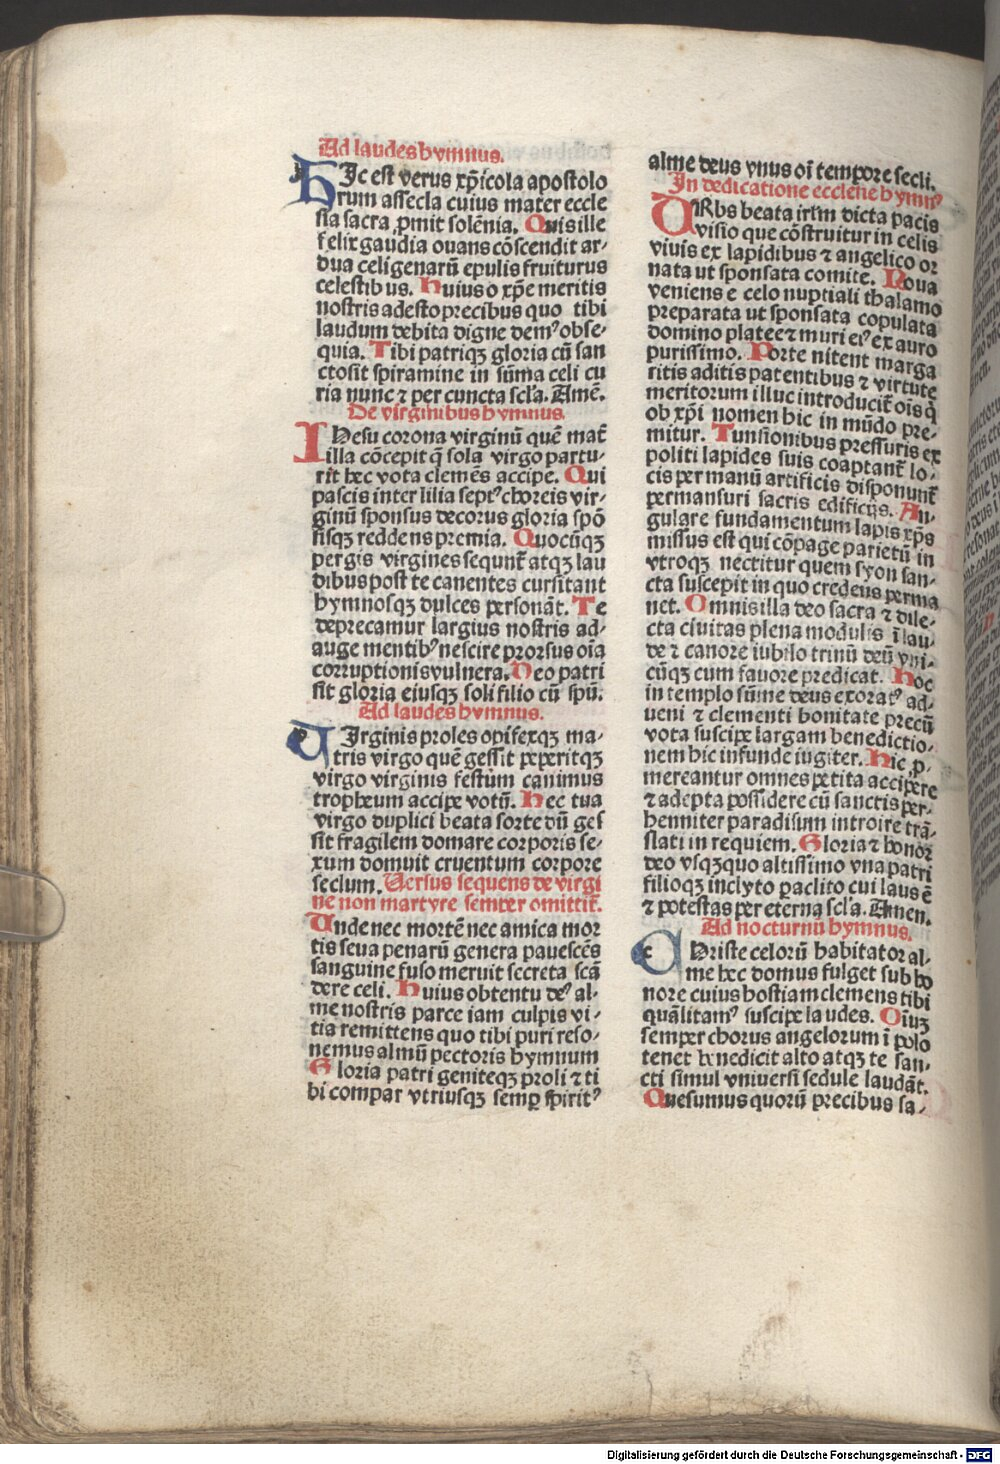 Ad laudes hymnus.
HIc est verus xp̄icola apostolo
rum assecla cuius mater eccle
sia sacra ꝓmit solēnia. Quis ille
felix gaudia ouans cōscendit ar-
dua celigenarū epulis fruiturus
celestibus. Huius o xp̄e meritis
nostris adesto precibus quo tibi
laudum debita digne demꝰ obse-
quia. Tibi patriqꝫ gloria cū san
cto sit spiramine in sūma celi cu
ria nunc ⁊ per cuncta scl'a. Amē.
De virginibus hymnus.
IHesu corona virginū quē mat̄
illa cōcepit q̄ sola virgo partu-
rit hec vota clemēs accipe. Qui
pascis inter lilia septꝰ choreis vir-
ginū sponsus decorus gloria spō
sisqꝫ reddens premia. Quocūqꝫ
pergis virgines sequunt̄ atqꝫ lau
dibus post te canentes cursitant
hymnosqꝫ dulces personāt. Te
deprecamur largius nostris ad-
auge mentibꝰ nescire prorsus oīa
corruptionis vulnera. Deo patri
sit gloria eiusqꝫ soli filio cū spū.
Ad laudes hymnus.
VIrginis proles opifexqꝫ ma-
tris virgo quē gessit peperitqꝫ
virgo virginis festum canimus
tropheum accipe votū. Hec tua
virgo duplici beata sorte dū ges
sit fragilem domare corporis se-
xum domuit cruentum corpore
seclum. Versus sequens de virgi
ne non martyre semper omittit̄.
Vnde nec mortē nec amica mor
tis seua penarū genera pauescēs
sanguine fuso meruit secreta scā
dere celi. Huius obtentu deꝰ al-
me nostris parce iam culpis vi-
tia remittens quo tibi puri reso-
nemus almū pectoris hymnum
Gloria patri geniteqꝫ proli ⁊ ti
bi compar vtriusqꝫ semꝑ spiritꝰ
alme deus vnus oī tempore secli.
In dedicatione ecclesie hymnꝰ
VRbs beata irl'm dicta pacis
visio que cōstruitur in celis
viuis ex lapidibus ⁊ angelico or
nata ut sponsata comite. Noua
veniens e celo nuptiali thalamo
preparata ut sponsata copulata
domino platee ⁊ muri eiꝰ ex auro
purissimo. Porte nitent marga
ritis aditis patentibus ⁊ virtute
meritorum illuc introducit̄ oīs q̄
ob xp̄i nomen hic in mūdo pre-
mitur. Tunsionibus pressuris ex
politi lapides suis coaptant̄ lo-
cis per manū artificis disponunt̄
permansuri sacris edificijs. An-
gulare fundamentum lapis xp̄s
missus est qui cōpage parietū in
vtroqꝫ nectitur quem syon san-
cta suscepit in quo credens perma
net. Omnis illa deo sacra ⁊ dile-
cta ciuitas plena modulis ī lau-
de ⁊ canore iubilo trinū deū vni-
cūqꝫ cum fauore predicat. Hoc
in templo sūme deus exoratꝰ ad-
ueni ⁊ clementi bonitate precū
vota suscipe largam benedictio-
nem hic infunde iugiter. Hic ꝓ-
mereantur omnes petita accipere
⁊ adepta possidere cū sanctis per-
henniter paradisum introire trā-
slati in requiem. Gloria ⁊ honor
deo vsqꝫquo altissimo vna patri
filioqꝫ inclyto paclito cui laus ē
⁊ potestas per eterna scl'a. Amen.
Ad nocturnū hymnus.
CHriste celorū habitator al-
me hec domus fulget sub ho
nore cuius hostiam clemens tibi
quā litamꝰ suscipe laudes. Oīuꝫ
semper chorus angelorum ī polo
tenet benedicit alto atqꝫ te san-
cti simul vniuersi sedule laudāt.
Quesumus quorū precibus sa-
Digitalisierung gefördert durch die Deutsche Forschungsgemeinschaft - DFG